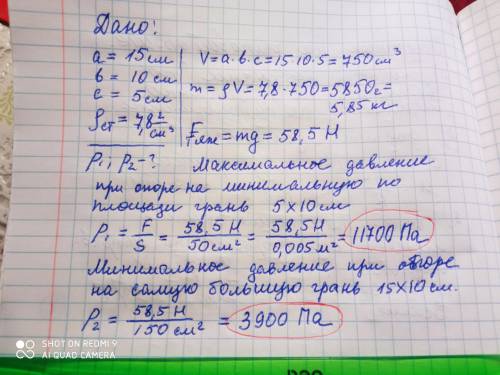 Дано:
a = 15 см
в = 10 см
с = 5 см
ρст = 7,8 г/см³
V = a·в·с = 15·10·5 = 750 см³
m = ρV = 7,8·750 = 5850 г =
5,85 кг
Fтяж = mg = 58,5 Н
P₁; P₂ - ? Максимальное давление
при опоре на минимальную по
площади грань 5×10 см
P₁ = F/S = 58,5 Н/50 см² = 58,5 Н/0,005 м² = 11700 Па
Минимальное давление при опоре
на самую большую грань 15×10 см.
P₂ = 58,5 Н/150 см² = 3900 Па
SHOT ON REDMI 9
AI QUAD CAMERA